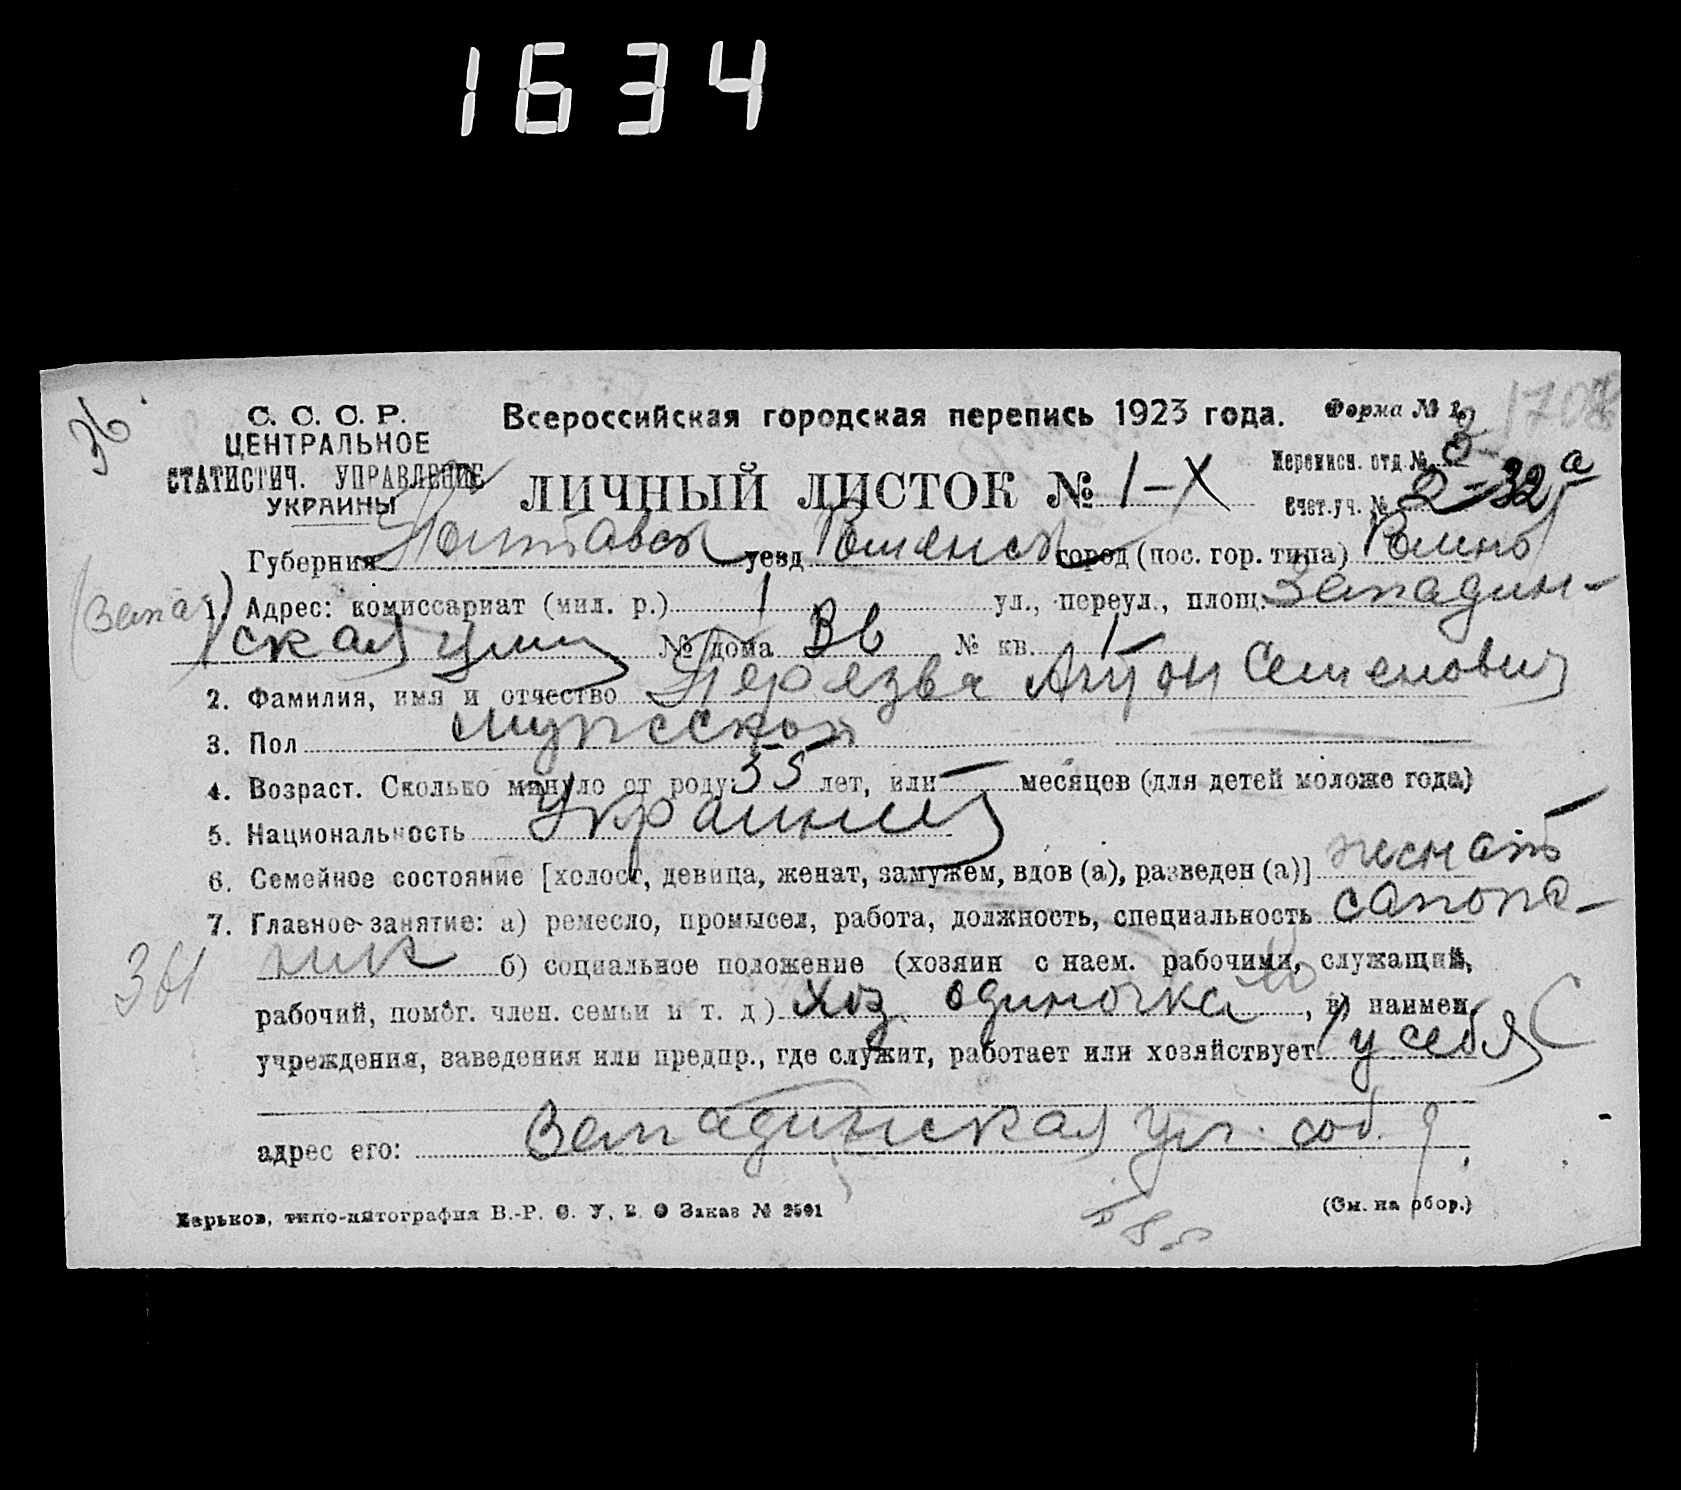 1634
С. С. С. Р.
ЦЕНТРАЛЬНОЕ
СТАТИСТИЧ. УПРАВЛЕНИЕ
УКРАИНЫ
Всероссийская городская перепись 1923 года.
Форма № 1.
ЛИЧНЫЙ ЛИСТОК № 1-X
Переписн. отд. № 3
Счет. уч. № 2-32а
Губерния Полтавск уезд Роменск город (пос. гор. типа) Ромны
1. Адрес: комиссариат (мил. р.) 1 ул., переул., площ. Западин-
ская улиц № дома № кв. 1
2. Фамилия, имя и отчество Антон Семенович
3. Пол мужской
4. Возраст. Сколько минуло от роду 35 лет, или — месяцев (для детей моложе года)
5. Национальность Украинец
6. Семейное состояние [холост, девица, женат, замужем, вдов (а), разведен (а)] женат
7. Главное занятие: а) ремесло, промысел, работа, должность, специальность сапож-
ник б) социальное положение (хозяин с наем. рабочими, служащий,
рабочий, помог. член. семьи и т. д.) хоз. одиночка, в) наимен.
учреждения, заведения или предпр., где служит, работает или хозяйствует у себя
адрес его: Западинская ул. соб. д
Харьков, типо-литография Заказ № 2501
(См. на обор.)